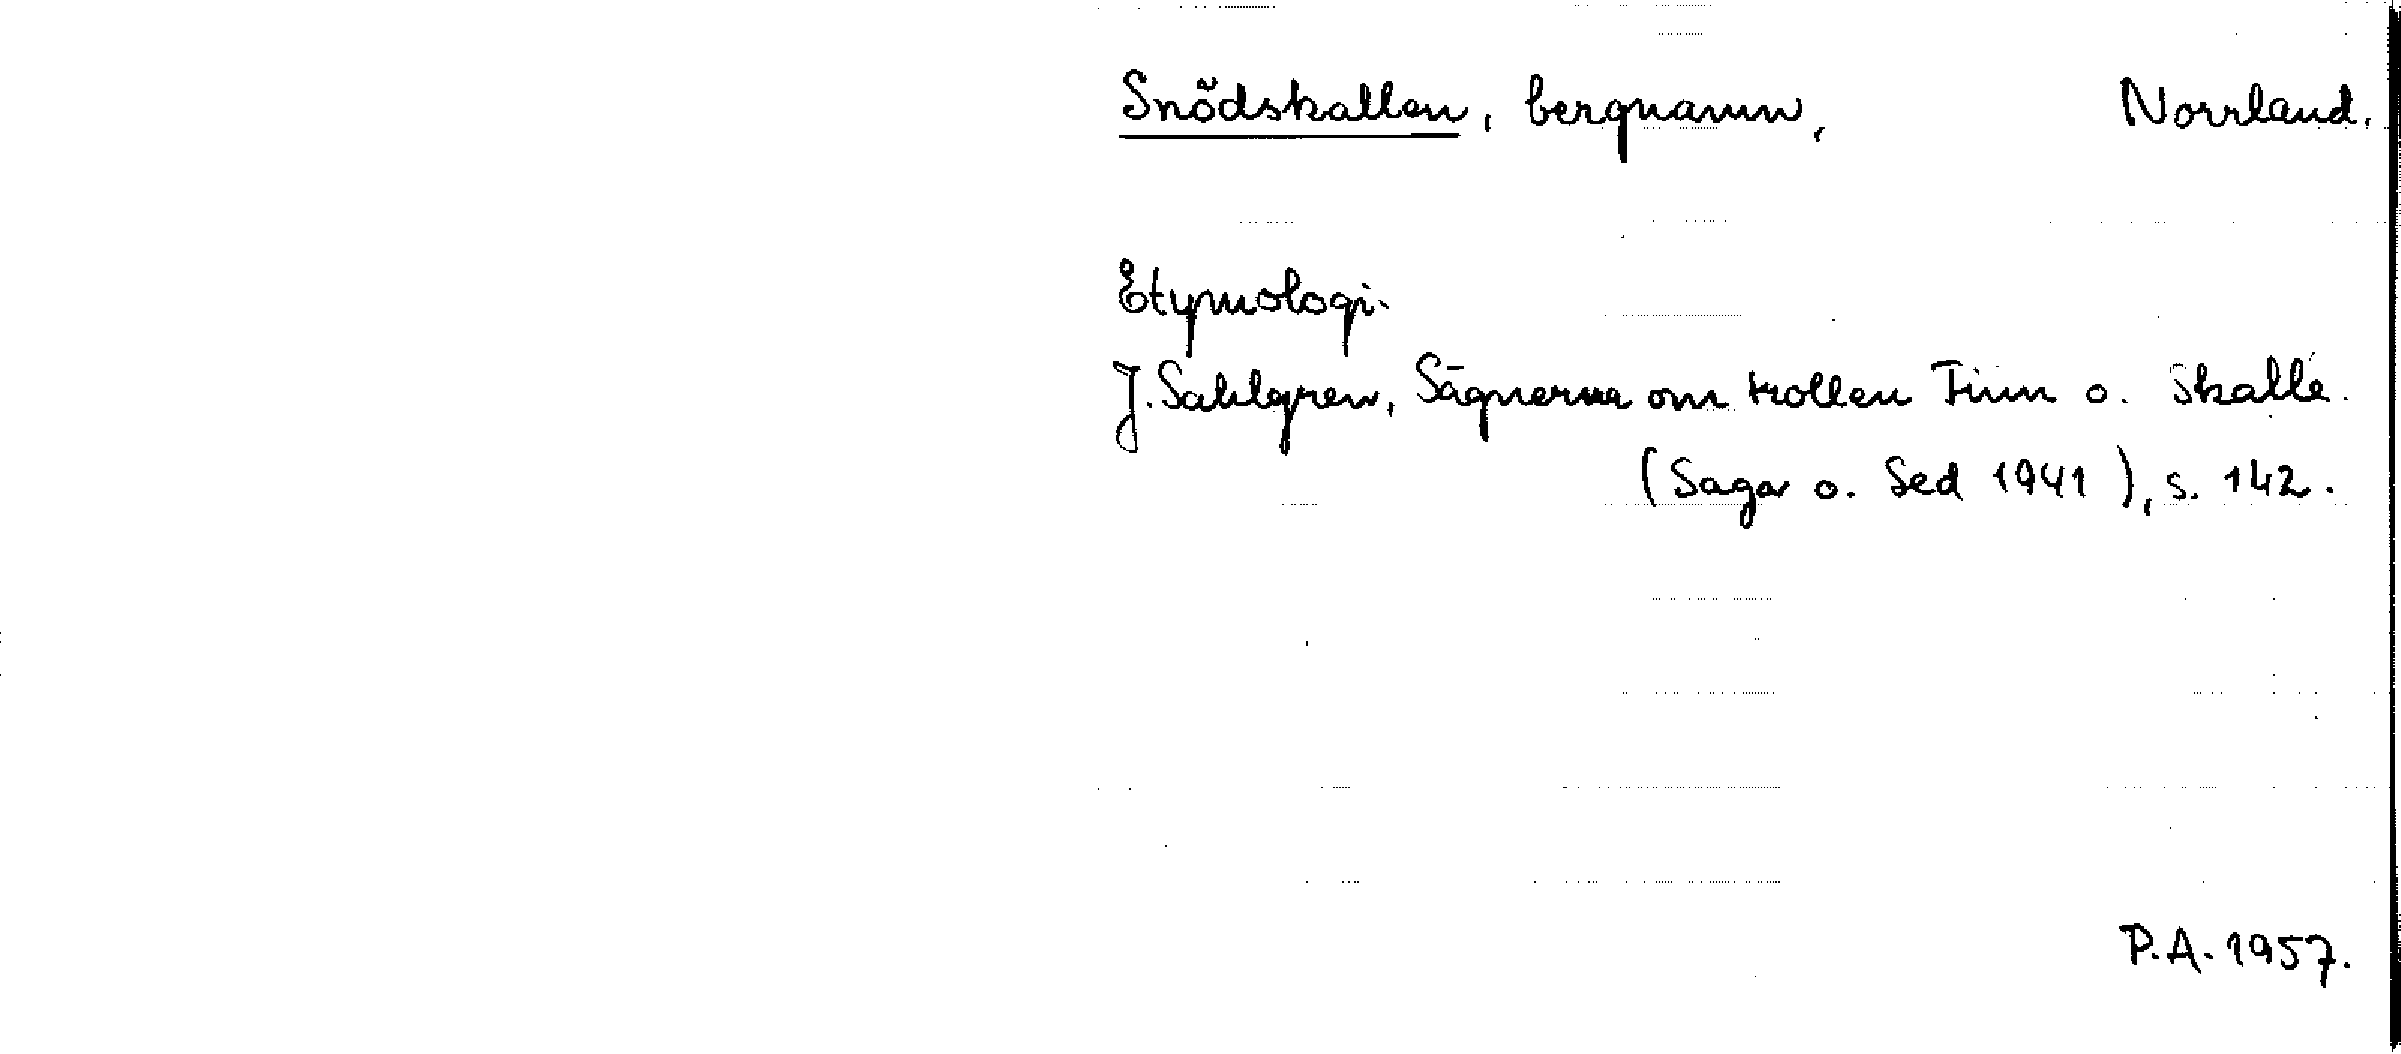 Snödskallen, bergnamn, Norrland.
Etymologi.
J. Sahlgren, Sägnerna om trollen Finn o. Skalle.
(Saga o. Sed 1941), s. 142.
P.A. 1957.